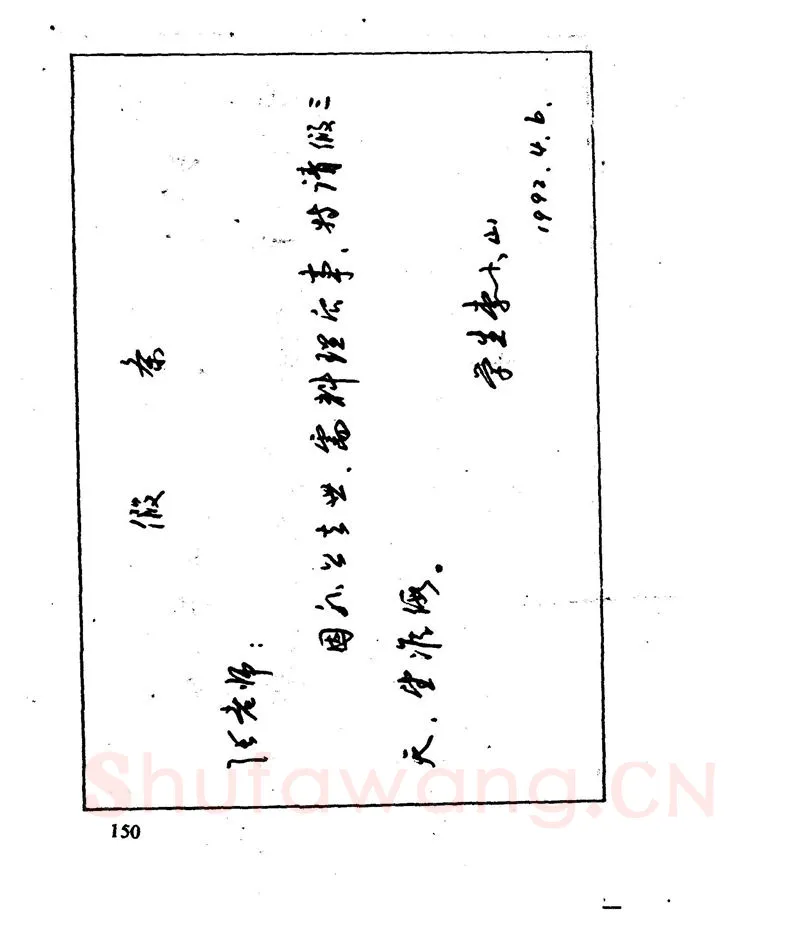 假 条
张老师:
因外公去世、需料理后事、特请假三
天、望准假。
学生李小山
1992.4.6.
150
Shufawang.CN